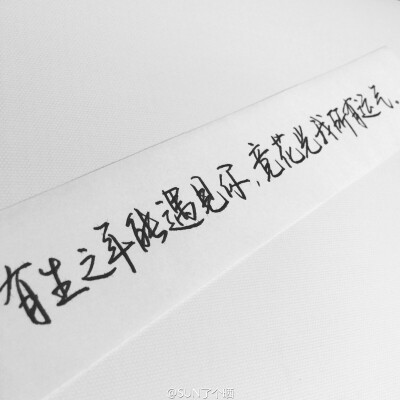 有生之年能遇见你，竟花光我所有运气。
@SUN了个晒